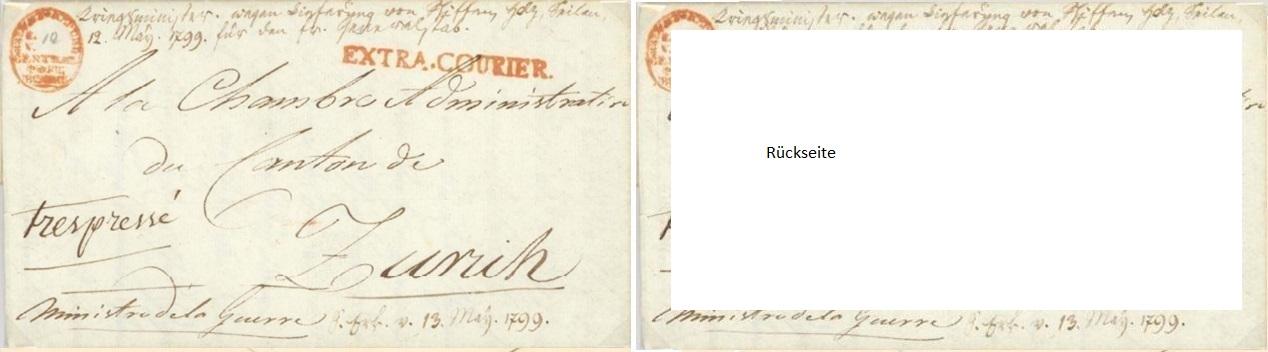 Krieghminister. wegen Lieferung von Schiffen, Holz, Seilen,
12. May. 1799. für den fr. Generalstab.
12
EXTRA.COURIER.
A la Chambre Administrative
du Canton de
trespressé
Zurich
Ministre de la Guerre
v. 13. May. 1799.
Krieghminister. wegen Lieferung von Schiffen, Holz, Seilen,
Rückseite
Ministre de la Guerre
v. 13. May. 1799.